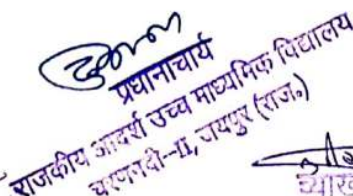 प्रधानाचार्य
राजकीय आदर्श उच्च माध्यमिक विद्यालय
चरणनदी-II, जयपुर (राज०)